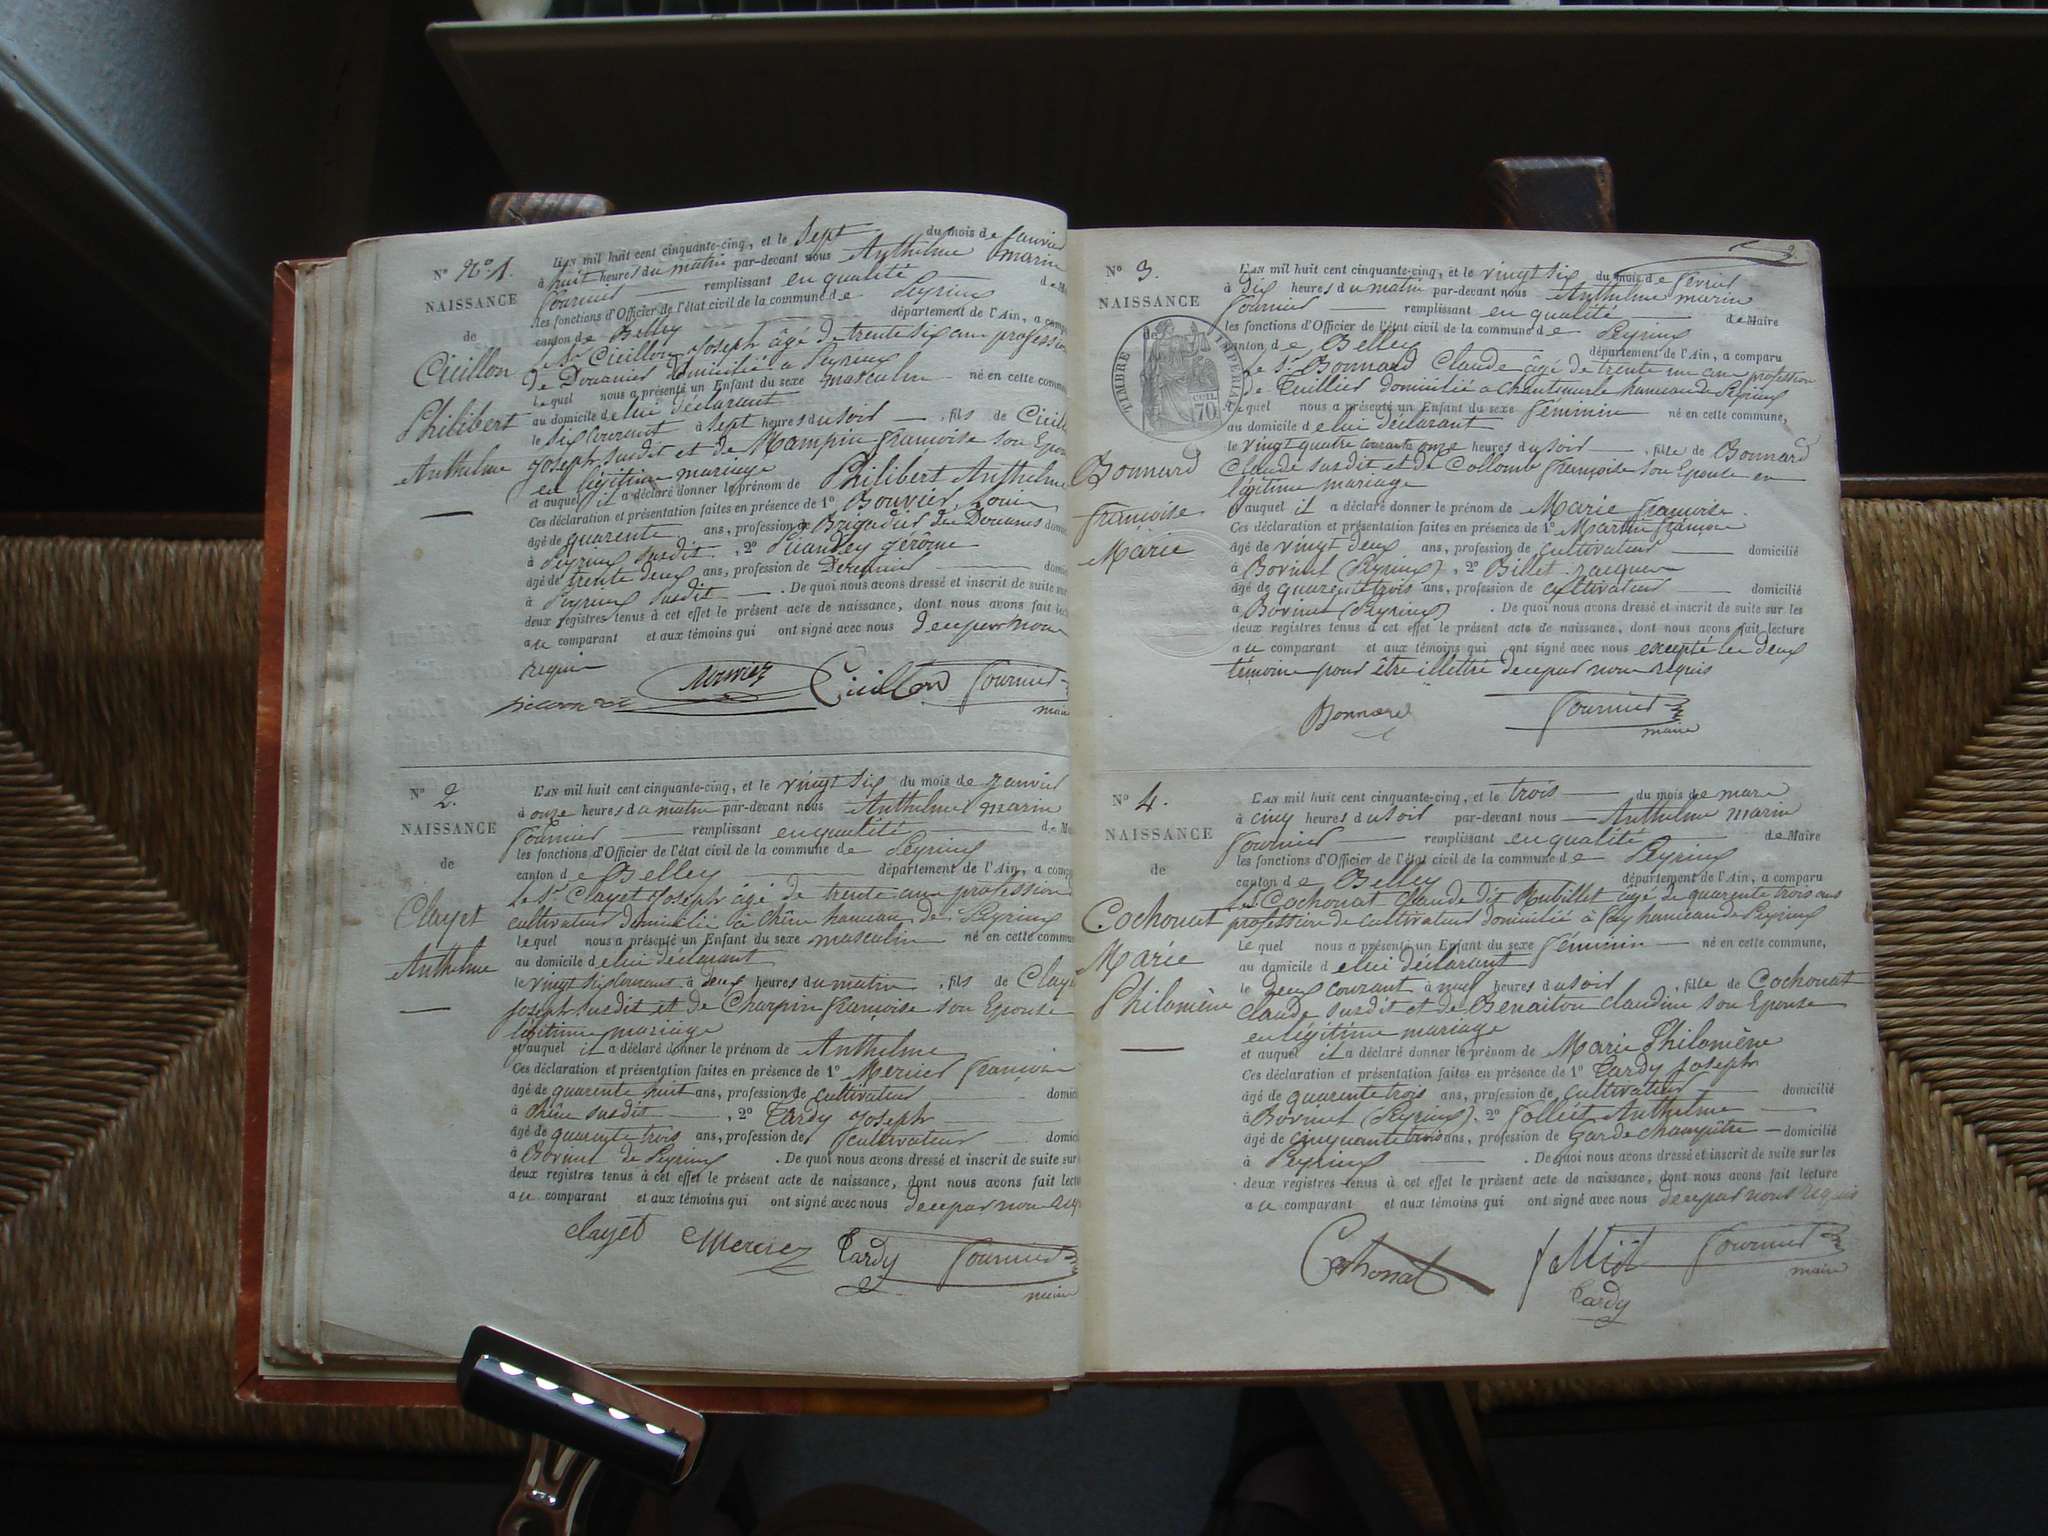 N° N° 1.
NAISSANCE
de
Cicillon
Philibert
Anthelme
L'AN mil huit cent cinquante-cinq, et le sept du mois de Janvier
à huit heures du matin par-devant nous Anthelme marin
Fournier remplissant en qualité de
les fonctions d'Officier de l'état civil de la commune de Peyrieux
canton de Belley département de l'Ain, a
le Sr. Cicillon Joseph âgé de trente six ans profession
de Douanier domicilié à Peyrieux
lequel nous a présenté un Enfant du sexe masculin né en cette
au domicile de lui déclarant
le six courant à sept heures du soir, fils de
Joseph susdit et de Mampin françoise son
en légitime mariage
et auquel il a déclaré donner le prénom de Philibert Anthelme
Ces déclaration et présentation faites en présence de 1° Bouvier, Louis
âgé de quarente ans, profession de Brigadier des Douanes
à Peyrieux susdit, 2° Jérôme
âgé de trente deux ans, profession de
à Peyrieux susdit. De quoi nous avons dressé et inscrit de suite sur
deux registres tenus à cet effet le présent acte de naissance, dont nous avons fait
au comparant et aux témoins qui ont signé avec nous de ce par nous
requis
Cicillon Fournier
maire
N° 2.
NAISSANCE
de
Clayet
Anthelme
L'AN mil huit cent cinquante-cinq, et le vingt six du mois de Janvier
à onze heures du matin par-devant nous Anthelme marin
Fournier remplissant en qualité de
les fonctions d'Officier de l'état civil de la commune de Peyrieux
canton de Belley département de l'Ain, a
le Sr. Clayet Joseph âgé de trente ans profession
cultivateur domicilié à chêne hameau de Peyrieux
lequel nous a présenté un Enfant du sexe masculin né en cette
au domicile de lui déclarant
le vingt six courant à deux heures du matin, fils de
Joseph susdit et de Charpin françoise son Epouse
légitime mariage
et auquel il a déclaré donner le prénom de Anthelme
Ces déclaration et présentation faites en présence de 1° Mercier françois
âgé de quarente huit ans, profession de cultivateur
à chêne susdit, 2° Tardy Joseph
âgé de quarente trois ans, profession de cultivateur
à Bovinel de Peyrieux. De quoi nous avons dressé et inscrit de suite sur
deux registres tenus à cet effet le présent acte de naissance, dont nous avons fait
au comparant et aux témoins qui ont signé avec nous de ce par nous
clayet Mercier Tardy Fournier
maire
N° 3.
NAISSANCE
de
TIMBRE IMPERIAL
70 CENT.
Bonnard
françoise
Marie
L'AN mil huit cent cinquante-cinq, et le vingt six du mois de février
à dix heures du matin par-devant nous Anthelme marin
Fournier remplissant en qualité de Maire
les fonctions d'Officier de l'état civil de la commune de Peyrieux
canton de Belley département de l'Ain, a comparu
le Sr. Bonnard Claude âgé de trente un ans profession
de Tuillier domicilié à hameau de Peyrieux
Lequel nous a présenté un Enfant du sexe féminin né en cette commune,
au domicile de lui déclarant
le vingt quatre courant à onze heures du soir, fille de Bonnard
Claude susdit et de Collomb françoise son Epouse en
légitime mariage
et auquel il a déclaré donner le prénom de Marie françoise.
Ces déclaration et présentation faites en présence de 1° Martin françois
âgé de vingt deux ans, profession de cultivateur domicilié
à Bovinel (Peyrieux), 2° Billet Jacques
âgé de quarente trois ans, profession de cultivateur domicilié
à Bovinel (Peyrieux). De quoi nous avons dressé et inscrit de suite sur les
deux registres tenus à cet effet le présent acte de naissance, dont nous avons fait lecture
au comparant et aux témoins qui ont signé avec nous excepté les deux
témoins pour être illettré de ce par nous requis
Bonnard Fournier
maire
N° 4.
NAISSANCE
de
Cochonat
Marie
Philomène
L'AN mil huit cent cinquante-cinq, et le trois du mois de mars
à cinq heures du soir par-devant nous Anthelme marin
Fournier remplissant en qualité de Maire
les fonctions d'Officier de l'état civil de la commune de Peyrieux
canton de Belley département de l'Ain, a comparu
le Sr Cochonat Claude dit Rubillet âgé de quarente trois ans
profession de cultivateur domicilié à fay hameau de Peyrieux
Lequel nous a présenté un Enfant du sexe féminin né en cette commune,
au domicile de lui déclarant
le deux courant à neuf heures du soir, fille de Cochonat
Claude susdit et de Benaiton claudine son Epouse
en légitime mariage
et auquel il a déclaré donner le prénom de Marie Philomène
Ces déclaration et présentation faites en présence de 1° Tardy Joseph
âgé de quarente trois ans, profession de cultivateur domicilié
à Bovinel (Peyrieux), 2° Jolliet Anthelme
âgé de cinquante trois ans, profession de Garde champêtre domicilié
à Peyrieux. De quoi nous avons dressé et inscrit de suite sur les
deux registres tenus à cet effet le présent acte de naissance, dont nous avons fait lecture
au comparant et aux témoins qui ont signé avec nous de ce par nous requis
Cochonat Fournier
maire
Tardy